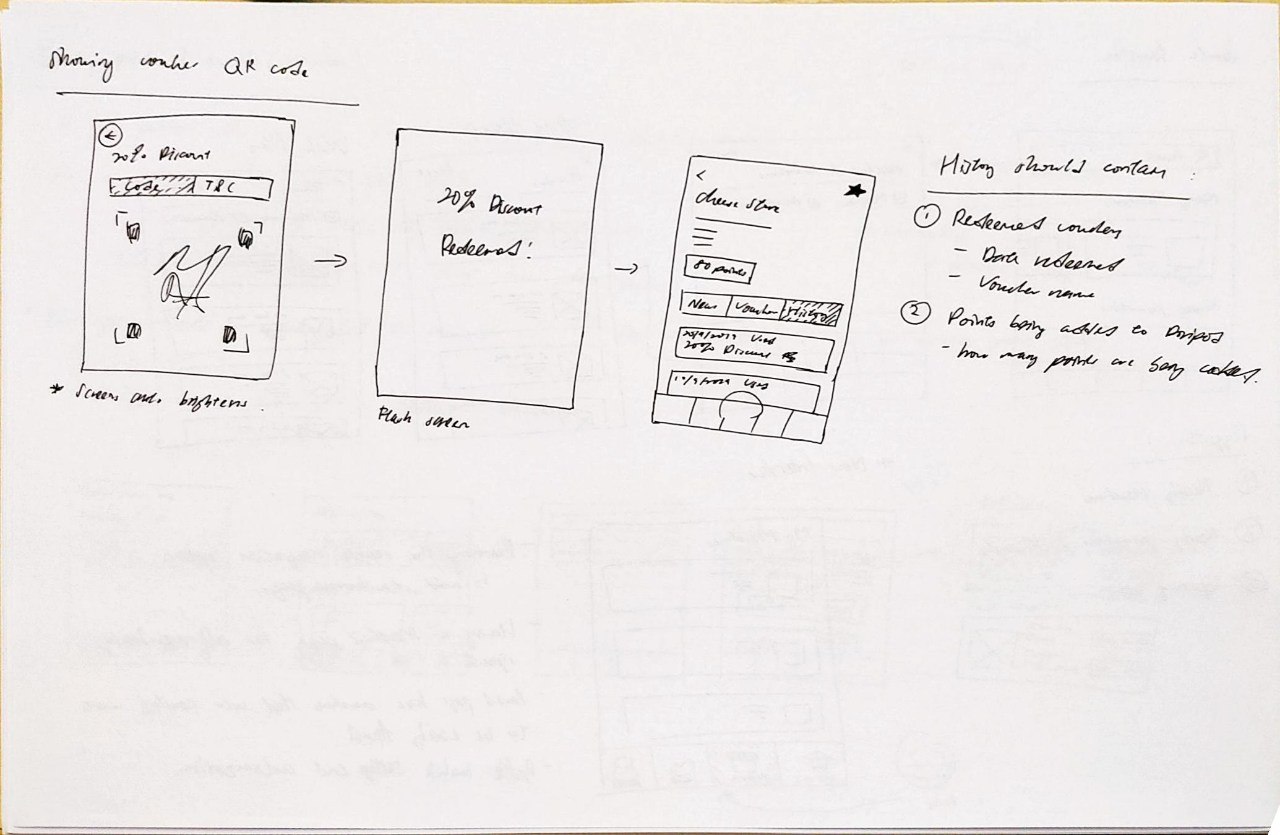 Showing voucher QR code
20% Discount
Code T&C
* Screens auto brightens.
20% Discount
Redeemed!
Flash screen
<
cheese store
80 points
News Voucher History
Used
20% Discount
Used
History should contain :
① Redeemed vouchers
- Date redeemed
- Voucher name
② Points being added to
- how many points are being added.